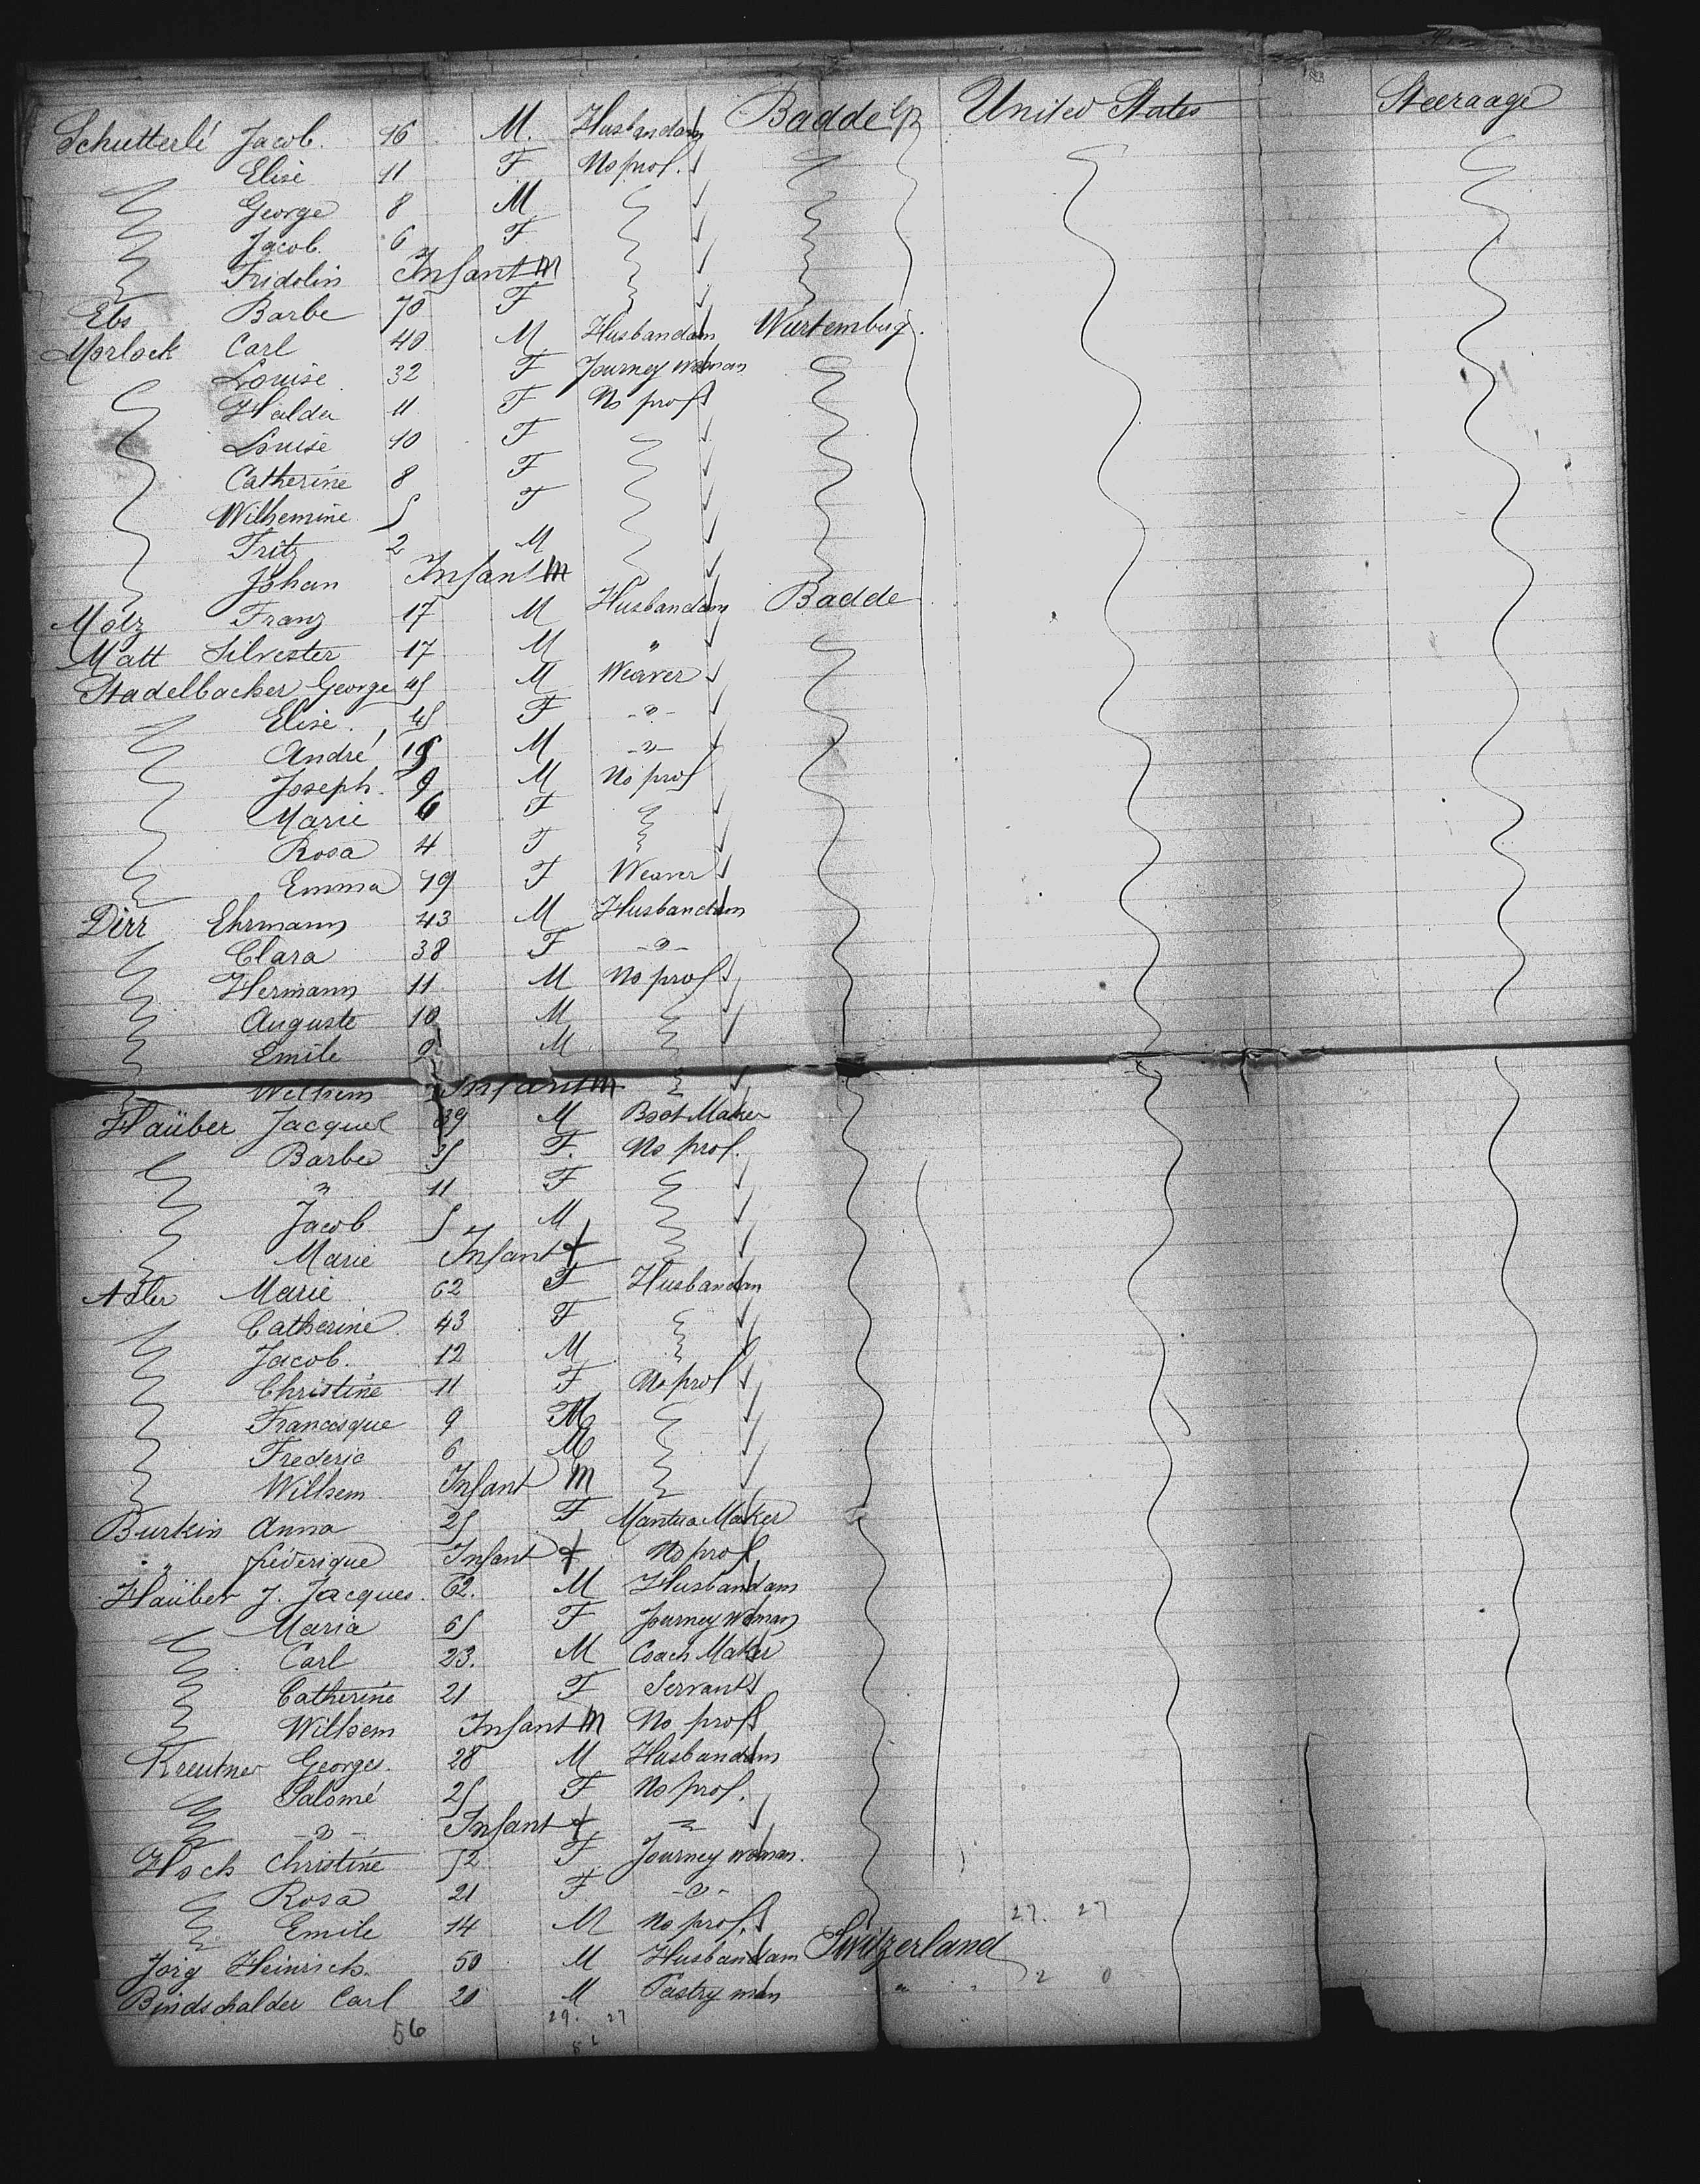 Schutterlé Jacob. 16 M. Husbandam Badde United States Steeraage
Elise 11 F No prof.
George 8 M
Jacob. 6 F
Fridolin Infant M
Ebs Barbe 70 F
Morlock Carl 40 M Husbandam Wurtemburg.
Louise 32 F Journey woman
Halda 11 F No prof
Louise 10 F
Catherine 8 F
Wilhemine 5 F
Fritz 2 M
Johan Infant M
Molz Franz 17 M Husbandam Badde
Matt Silvester 17 M "
Stadelbacher George 45 M Weaver
Elise 45 F -"-
André 15 M -"-
Joseph. 9 M No prof
Marie 6 F
Rosa 4 F
Emma 19 F Weaver
Dirr Ehrmann 43 M Husbandam
Clara 38 F -"-
Hermann 11 M No prof
Auguste 10 M
Emile 9 M
Wilhem Infant M
Haüber Jacques 39 M Boot Maker
Barbe 35 F. No prof.
" 11 F
Jacob 5 M
Marie Infant f
Adler Marie 62 F Husbandam
Catherine 43 F
Jacob. 12 M
Christine 11 F No prof
Francisque 9 M
Frederic 6 M
Wilhem Infant M
Burkin Anna 25 F Mantua Maker
" fréderique Infant f No prof
Haüber J. Jacques. 62. M Husbandam
Maria 65 F Journey woman
Carl 23. M Coach Maker
Catherine 21 F Servant
Wilhem Infant M No prof
Kreutner Georges. 28 M Husbandam
Salomé 25 F No prof.
-"- Infant f "
Hoch Christine 52 F Journey woman.
Rosa 21 F -"-
Emile 14 M No prof. 27. 27
Jorg Heinrich. 50 M Husbandam Switzerland
Bindschalder Carl 20 M Pastry man " " 2 0
56 29. 27